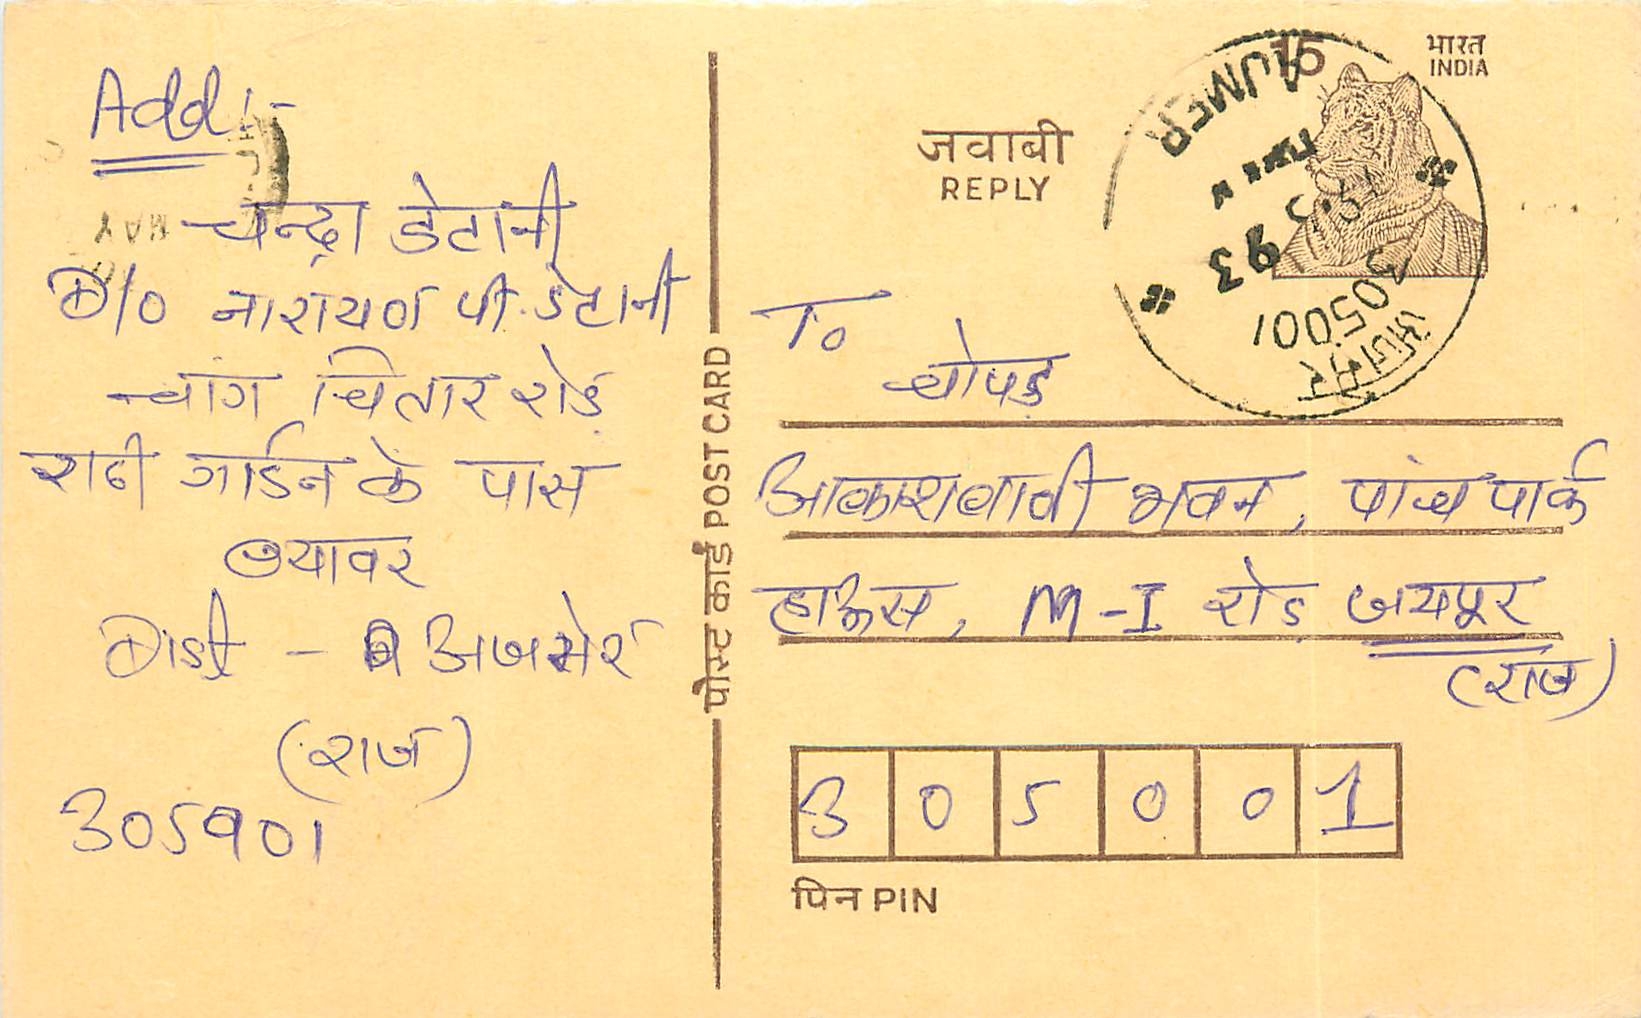 Add :-
चन्द्रा डेटानी
D/o नारायण पी. डेटानी
चांग चितार रोड
शनी गार्डन के पास
ब्यावर
Dist - अजमेर
(राज)
305901
पोस्ट कार्ड POST CARD
15
भारत
INDIA
जवाबी
REPLY
AJMER
93
305001
अजमेर
To
चोपड़
आकाशवाणी भवन, पांच पार्क
हाऊस, M-I रोड जयपूर
(राज)
3 0 5 0 0 1
पिन PIN